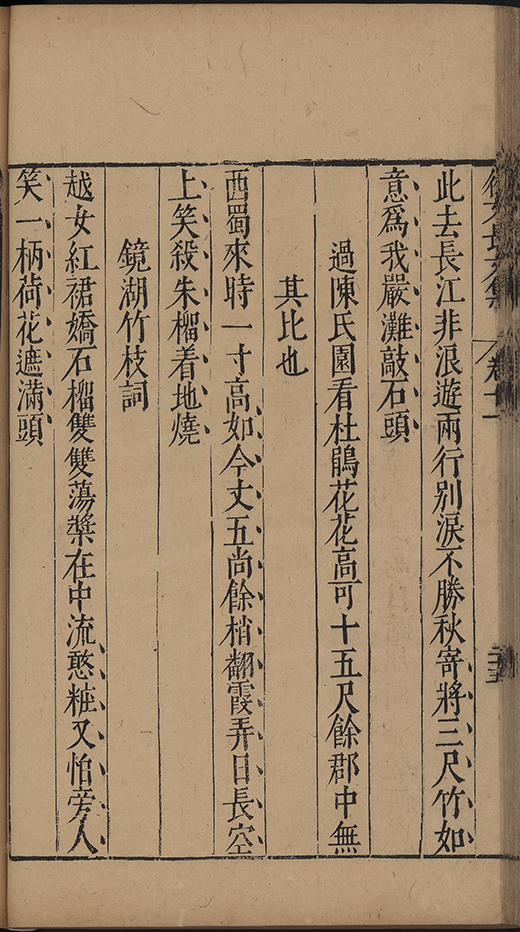 徐文長文集 卷十一 二十三
此去長江非浪遊兩行別淚不勝秋寄將三尺竹如
意爲我嚴灘敲石頭
過陳氏園看杜鵑花花高可十五尺餘郡中無
其比也
西蜀來時一寸高如今丈五尚餘梢翻霞弄日長空
上笑殺朱榴着地燒
鏡湖竹枝詞
越女紅裙嬌石榴雙雙蕩槳在中流憨粧又怕旁人
笑一柄荷花遮滿頭